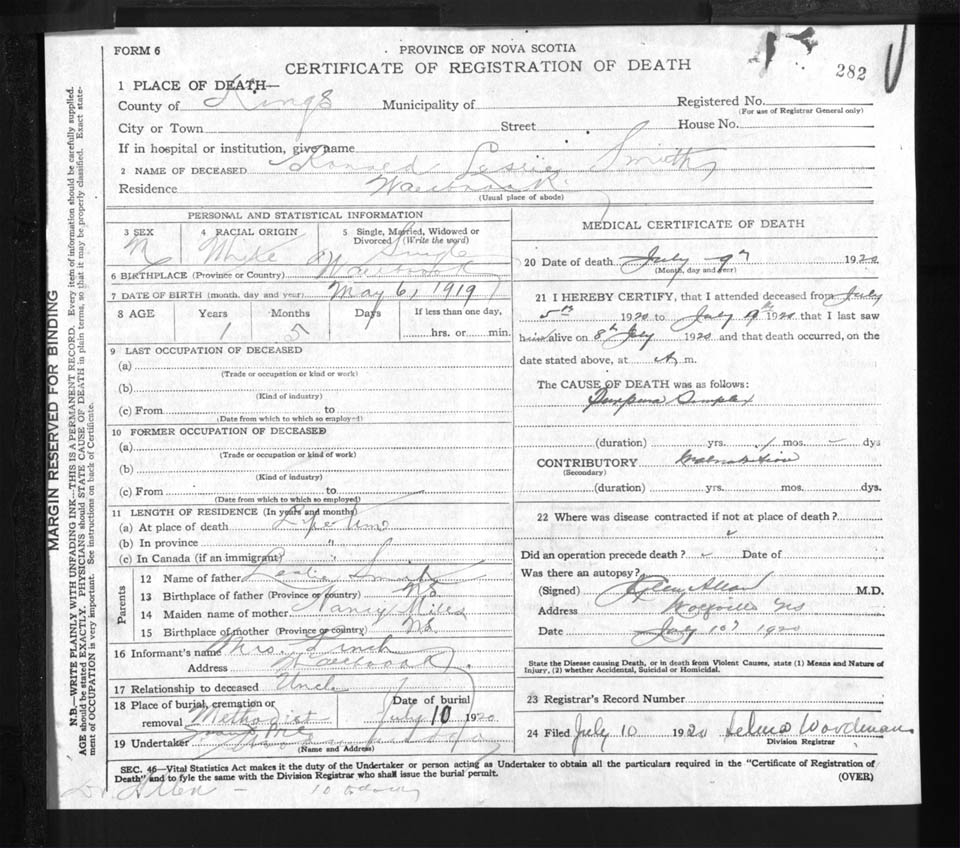 FORM 6
PROVINCE OF NOVA SCOTIA
CERTIFICATE OF REGISTRATION OF DEATH
282
1 PLACE OF DEATH—
County of Kings Municipality of Registered No.
(For use of Registrar General only)
City or Town Street House No.
If in hospital or institution, give name
2 NAME OF DECEASED Ronald Leslie Smith
Residence
(Usual place of abode)
PERSONAL AND STATISTICAL INFORMATION
3 SEX 4 RACIAL ORIGIN 5 Single, Married, Widowed or Divorced (Write the word)
M White Single
6 BIRTHPLACE (Province or Country)
7 DATE OF BIRTH (month, day and year) May 6, 1919
8 AGE Years Months Days If less than one day,
1 5 hrs. or min.
9 LAST OCCUPATION OF DECEASED
(a)
(Trade or occupation or kind or work)
(b)
(Kind of industry)
(c) From to
(Date from which to which so employed)
10 FORMER OCCUPATION OF DECEASED
(a)
(Trade or occupation or kind of work)
(b)
(Kind of industry)
(c) From to
(Date from which to which so employed)
11 LENGTH OF RESIDENCE (In years and months)
(a) At place of death Life time
(b) In province "
(c) In Canada (if an immigrant) "
Parents
12 Name of father Leslie Smith
13 Birthplace of father (Province or country) NS
14 Maiden name of mother Nancy
15 Birthplace of mother (Province or country) NS
16 Informant's name Mrs.
Address
17 Relationship to deceased Uncle
18 Place of burial, cremation or removal Methodist
Date of burial
July 10 1920
19 Undertaker
(Name and Address)
MEDICAL CERTIFICATE OF DEATH
20 Date of death July 9th 1920
(Month, day and year)
21 I HEREBY CERTIFY, that I attended deceased from July
5th 1920 to July 9th 1920 that I last saw
him alive on 8th July 1920 and that death occurred, on the
date stated above, at A m.
The CAUSE OF DEATH was as follows:
Purpura Simplex
(duration) yrs. 1 mos. dys
CONTRIBUTORY Malnutrition
(Secondary)
(duration) yrs. mos. dys.
22 Where was disease contracted if not at place of death?
Did an operation precede death? Date of
Was there an autopsy?
(Signed) M.D.
Address Wolfville NS
Date July 10th 1920
State the Disease causing Death, or in death from Violent Causes, state (1) Means and Nature of
Injury, (2) whether Accidental, Suicidal or Homicidal.
23 Registrar's Record Number
24 Filed July 10 1920 Selena Woodman
Division Registrar
SEC. 46—Vital Statistics Act makes it the duty of the Undertaker or person acting as Undertaker to obtain all the particulars required in the "Certificate of Registration of
Death" and to fyle the same with the Division Registrar who shall issue the burial permit.
(OVER)
Dr Allen –
MARGIN RESERVED FOR BINDING
N.B.—WRITE PLAINLY WITH UNFADING INK—THIS IS A PERMANENT RECORD. Every item of information should be carefully supplied.
AGE should be stated EXACTLY. PHYSICIANS should STATE CAUSE OF DEATH in plain terms, so that it may be properly classified. Exact state-
ment of OCCUPATION is very important. See instructions on back of Certificate.